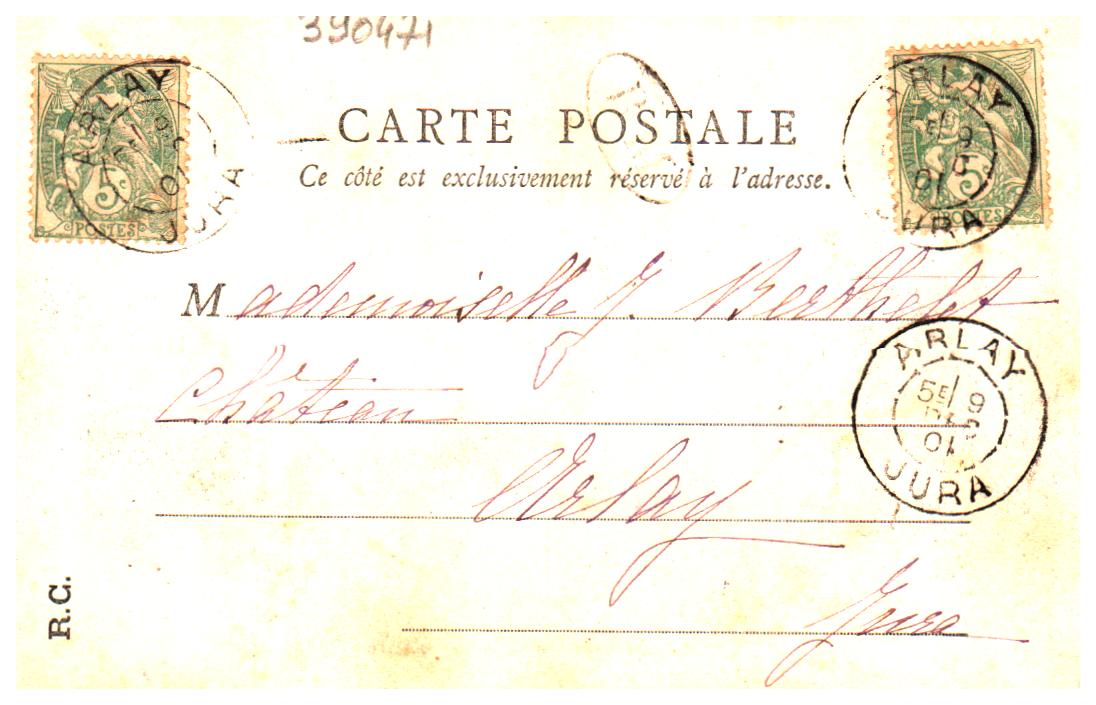 390471
CARTE POSTALE
Ce côté est exclusivement réservé à l'adresse.
ARLAY
JURA
5
POSTES
ARLAY
5E/9
01
JURA
5
POSTES
Mademoiselle J. Berthelet
Château
Arlay
Jura
ARLAY
5E/9
01
JURA
R.C.